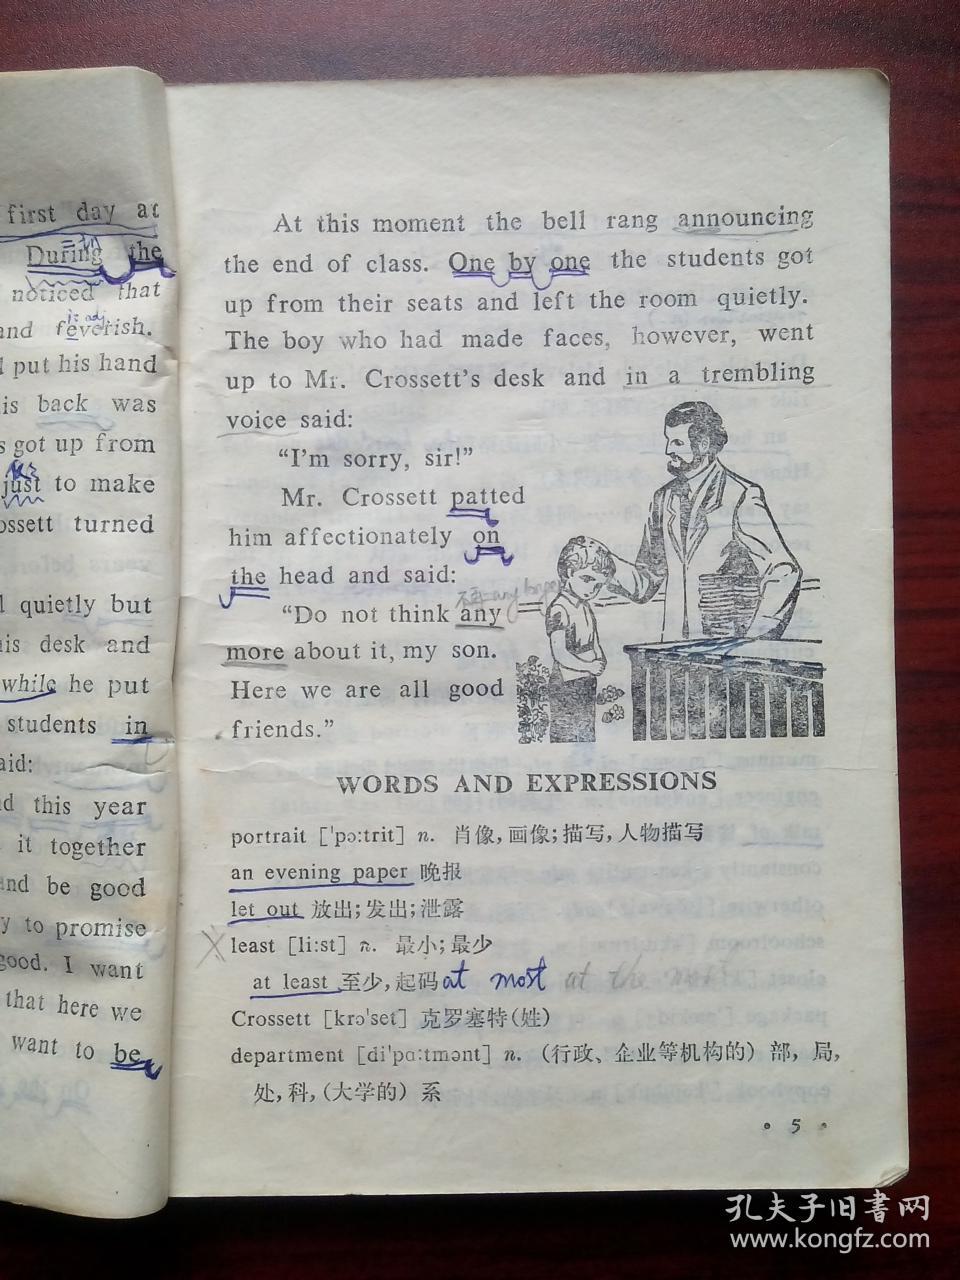 first day at
During the
noticed that
and feverish.
put his hand
is back was
s got up from
just to make
ossett turned
l quietly but
his desk and
while he put
students in
said:
d this year
it together
and be good
y to promise
good. I want
that here we
want to be
At this moment the bell rang announcing
the end of class. One by one the students got
up from their seats and left the room quietly.
The boy who had made faces, however, went
up to Mr. Crossett's desk and in a trembling
voice said:
"I'm sorry, sir!"
Mr. Crossett patted
him affectionately on
the head and said:
"Do not think any
more about it, my son.
Here we are all good
friends."
WORDS AND EXPRESSIONS
portrait ['pɔ:trit] n. 肖像,画像;描写,人物描写
an evening paper 晚报
let out 放出;发出;泄露
least [li:st] n. 最小;最少
at least 至少,起码 at most at the most
Crossett [krɔ'set] 克罗塞特(姓)
department [di'pɑ:tmənt] n. (行政、企业等机构的) 部,局,
处,科,(大学的) 系
• 5 •
孔夫子旧书网
www.kongfz.com